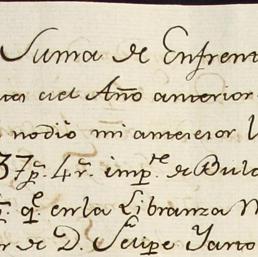 Suma de Enfrent
tas del Año anterior
nodio mi antesesor
37p.s 4r.s imp.te de Bula
q.e en la Libranza
de D. Felipe Yarto